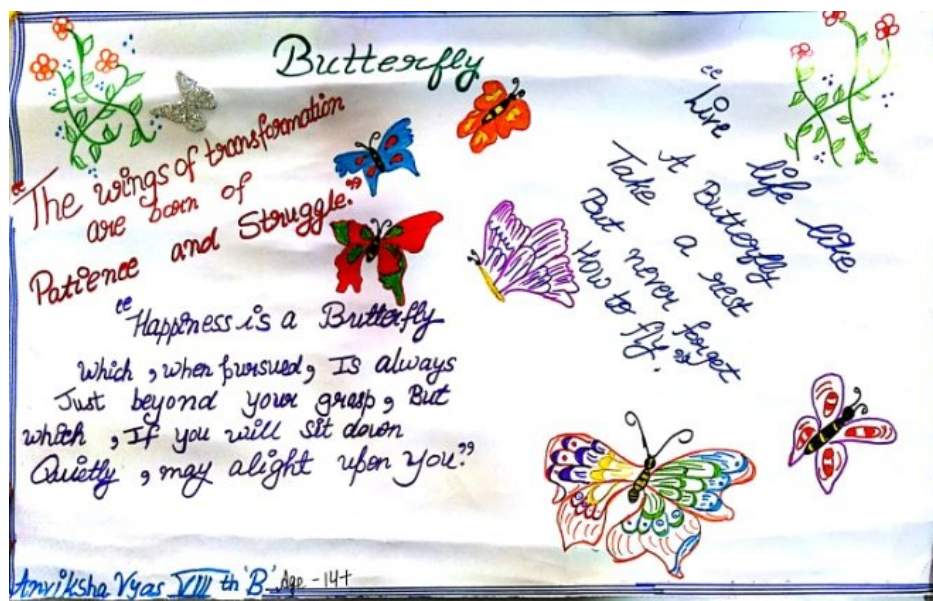 Butterfly
"The wings of transformation
are born of
Patience and Struggle."
"Happiness is a Butterfly
Which, when pursued, Is always
Just beyond your grasp, But
which, If you will sit down
Quietly, may alight upon you."
"Live life like
A Butterfly
Take a rest
But never forget
How to fly."
Anviksha Vyas VIII th 'B' Age - 14+